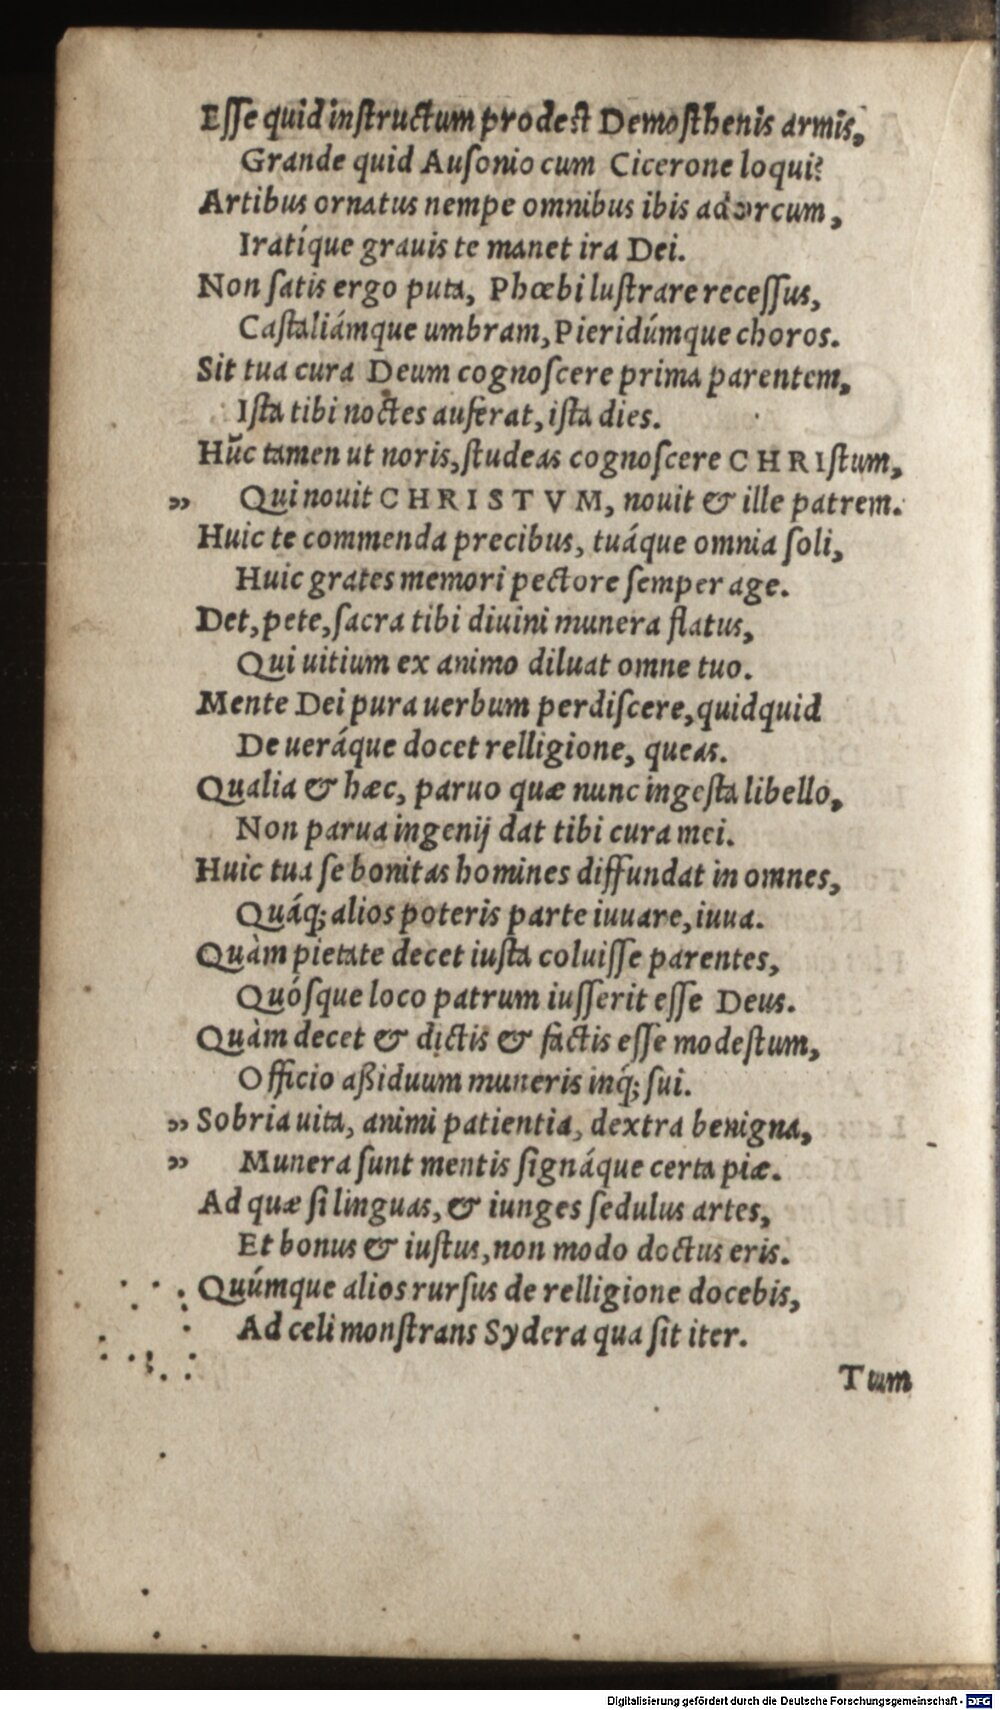 Eſſe quid inſtructum prodeſt Demoſthenis armis,
Grande quid Auſonio cum Cicerone loqui?
Artibus ornatus nempe omnibus ibis ad orcum,
Iratíque grauis te manet ira Dei.
Non ſatis ergo puta, Phœbi luſtrare receſſus,
Caſtaliámque umbram, Pieridúmque choros.
Sit tua cura Deum cognoſcere prima parentem,
Iſta tibi noctes auferat, iſta dies.
Hūc tamen ut noris, ſtudeas cognoſcere CHRIſtum,
„ Qui nouit CHRISTVM, nouit & ille patrem.
Huic te commenda precibus, tuáque omnia ſoli,
Huic grates memori pectore ſemper age.
Det, pete, ſacra tibi diuini munera flatus,
Qui uitium ex animo diluat omne tuo.
Mente Dei pura uerbum perdiſcere, quidquid
De ueráque docet relligione, queas.
Qualia & hæc, paruo quæ nunc ingeſta libello,
Non parua ingenij dat tibi cura mei.
Huic tua ſe bonitas homines diffundat in omnes,
Quáq; alios poteris parte iuuare, iuua.
Quàm pietate decet iuſta coluiſſe parentes,
Quóſque loco patrum iuſſerit eſſe Deus.
Quàm decet & dictis & factis eſſe modeſtum,
Officio aßiduum muneris inq́; ſui.
„ Sobria uita, animi patientia, dextra benigna,
„ Munera ſunt mentis ſignáque certa piæ.
Ad quæ ſi linguas, & iunges ſedulus artes,
Et bonus & iuſtus, non modo doctus eris.
Quúmque alios rurſus de relligione docebis,
Ad celi monſtrans Sydera qua ſit iter.
Tum
Digitalisierung gefördert durch die Deutsche Forschungsgemeinschaft - DFG